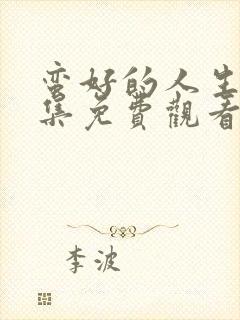 蛮好的人生
集免費觀看
李波